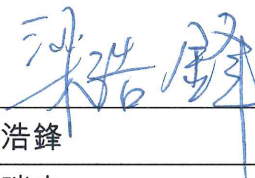 梁浩鋒
浩鋒